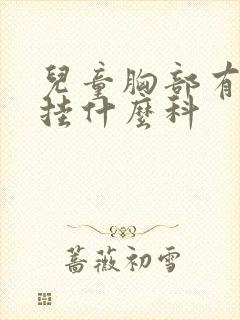 兒童胸部有
挂什麼科
薔薇初雪